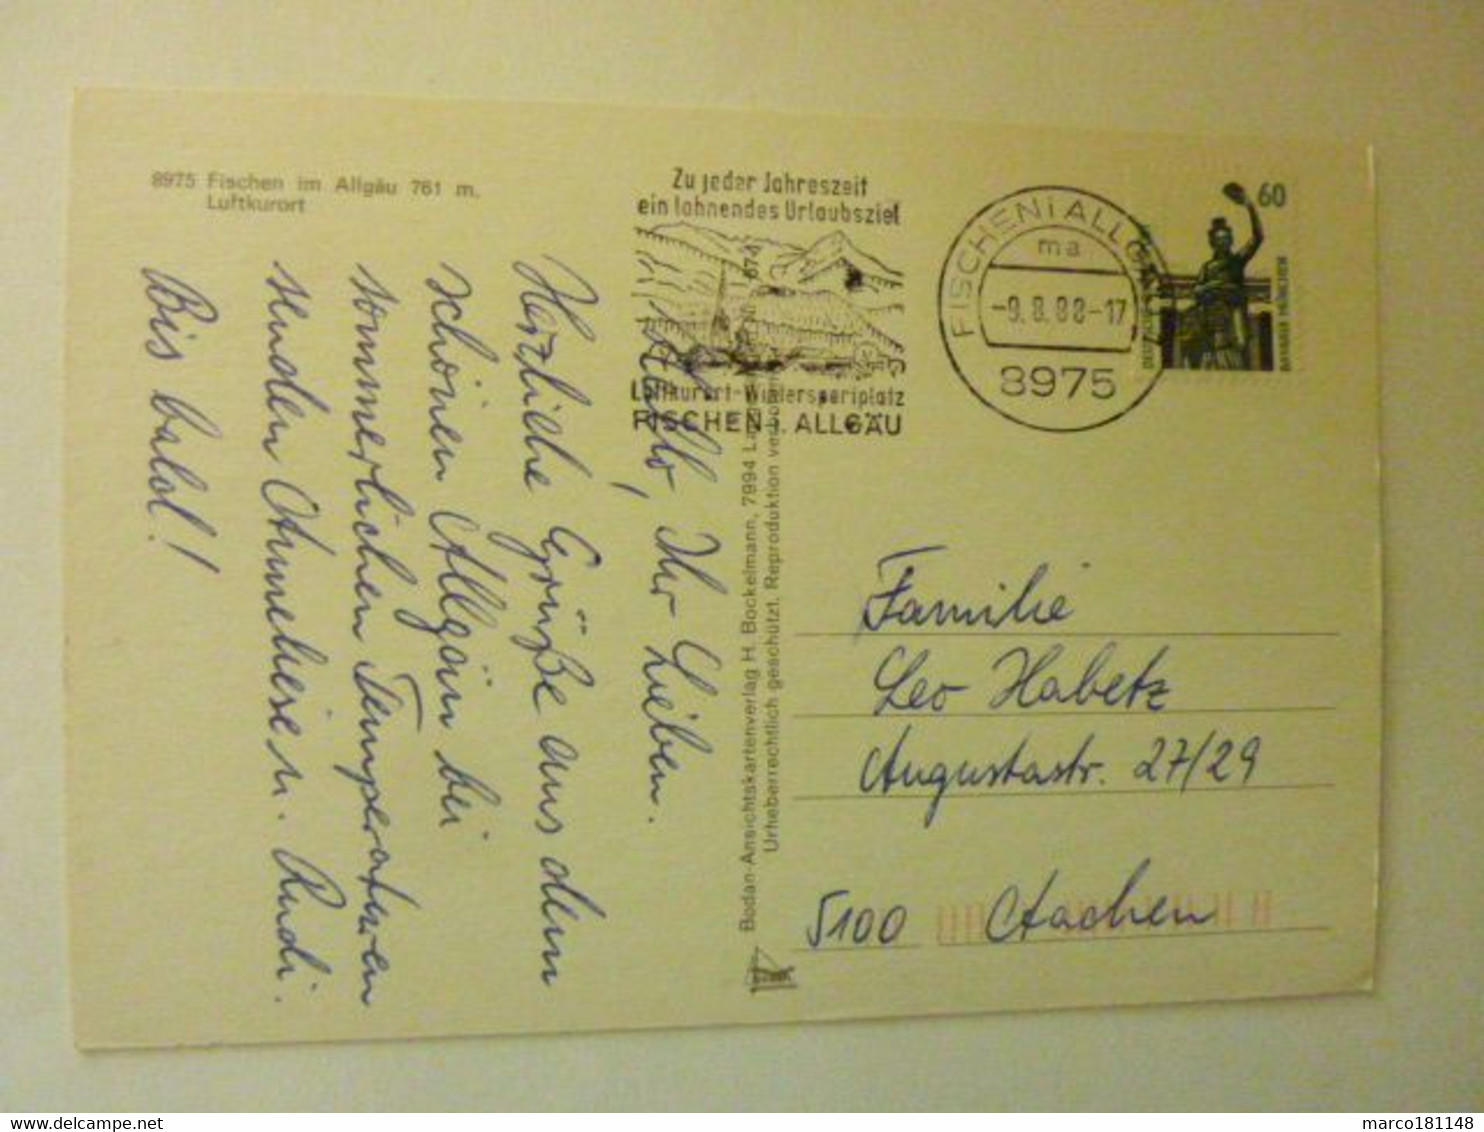 8975 Fischen im Allgäu 761 m.
Luftkurort
Zu jeder Jahreszeit
ein lohnendes Urlaubsziel
Luftkurort-Wintersportplatz
FISCHEN i. ALLGÄU
FISCHEN i ALLGÄU
ma
-9.8.88-17
8975
60
Hallo, Ihr Lieben.
Herzliche Grüße aus dem
schönen Allgäu bei
sommerlichen Temperaturen
senden Anneliese u. Rudi.
Bis bald!
Bodan-Ansichtskartenverlag H. Bockelmann, 7994
Urheberrechtlich geschützt. Reproduktion
Familie
Leo Habetz
Augustastr. 27/29
5100 Aachen
marco181148